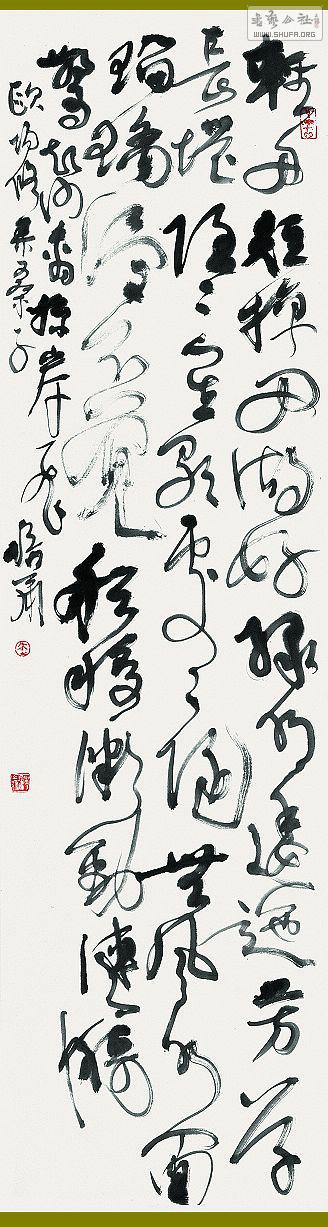 书艺公社
WWW.SHUFA.ORG
輕舟短棹西湖好綠水逶迤芳草
長堤隱々笙歌處々隨無風水面
琉璃滑不覺船移微動漣漪
驚起沙禽掠岸飛
歐陽修采桑子